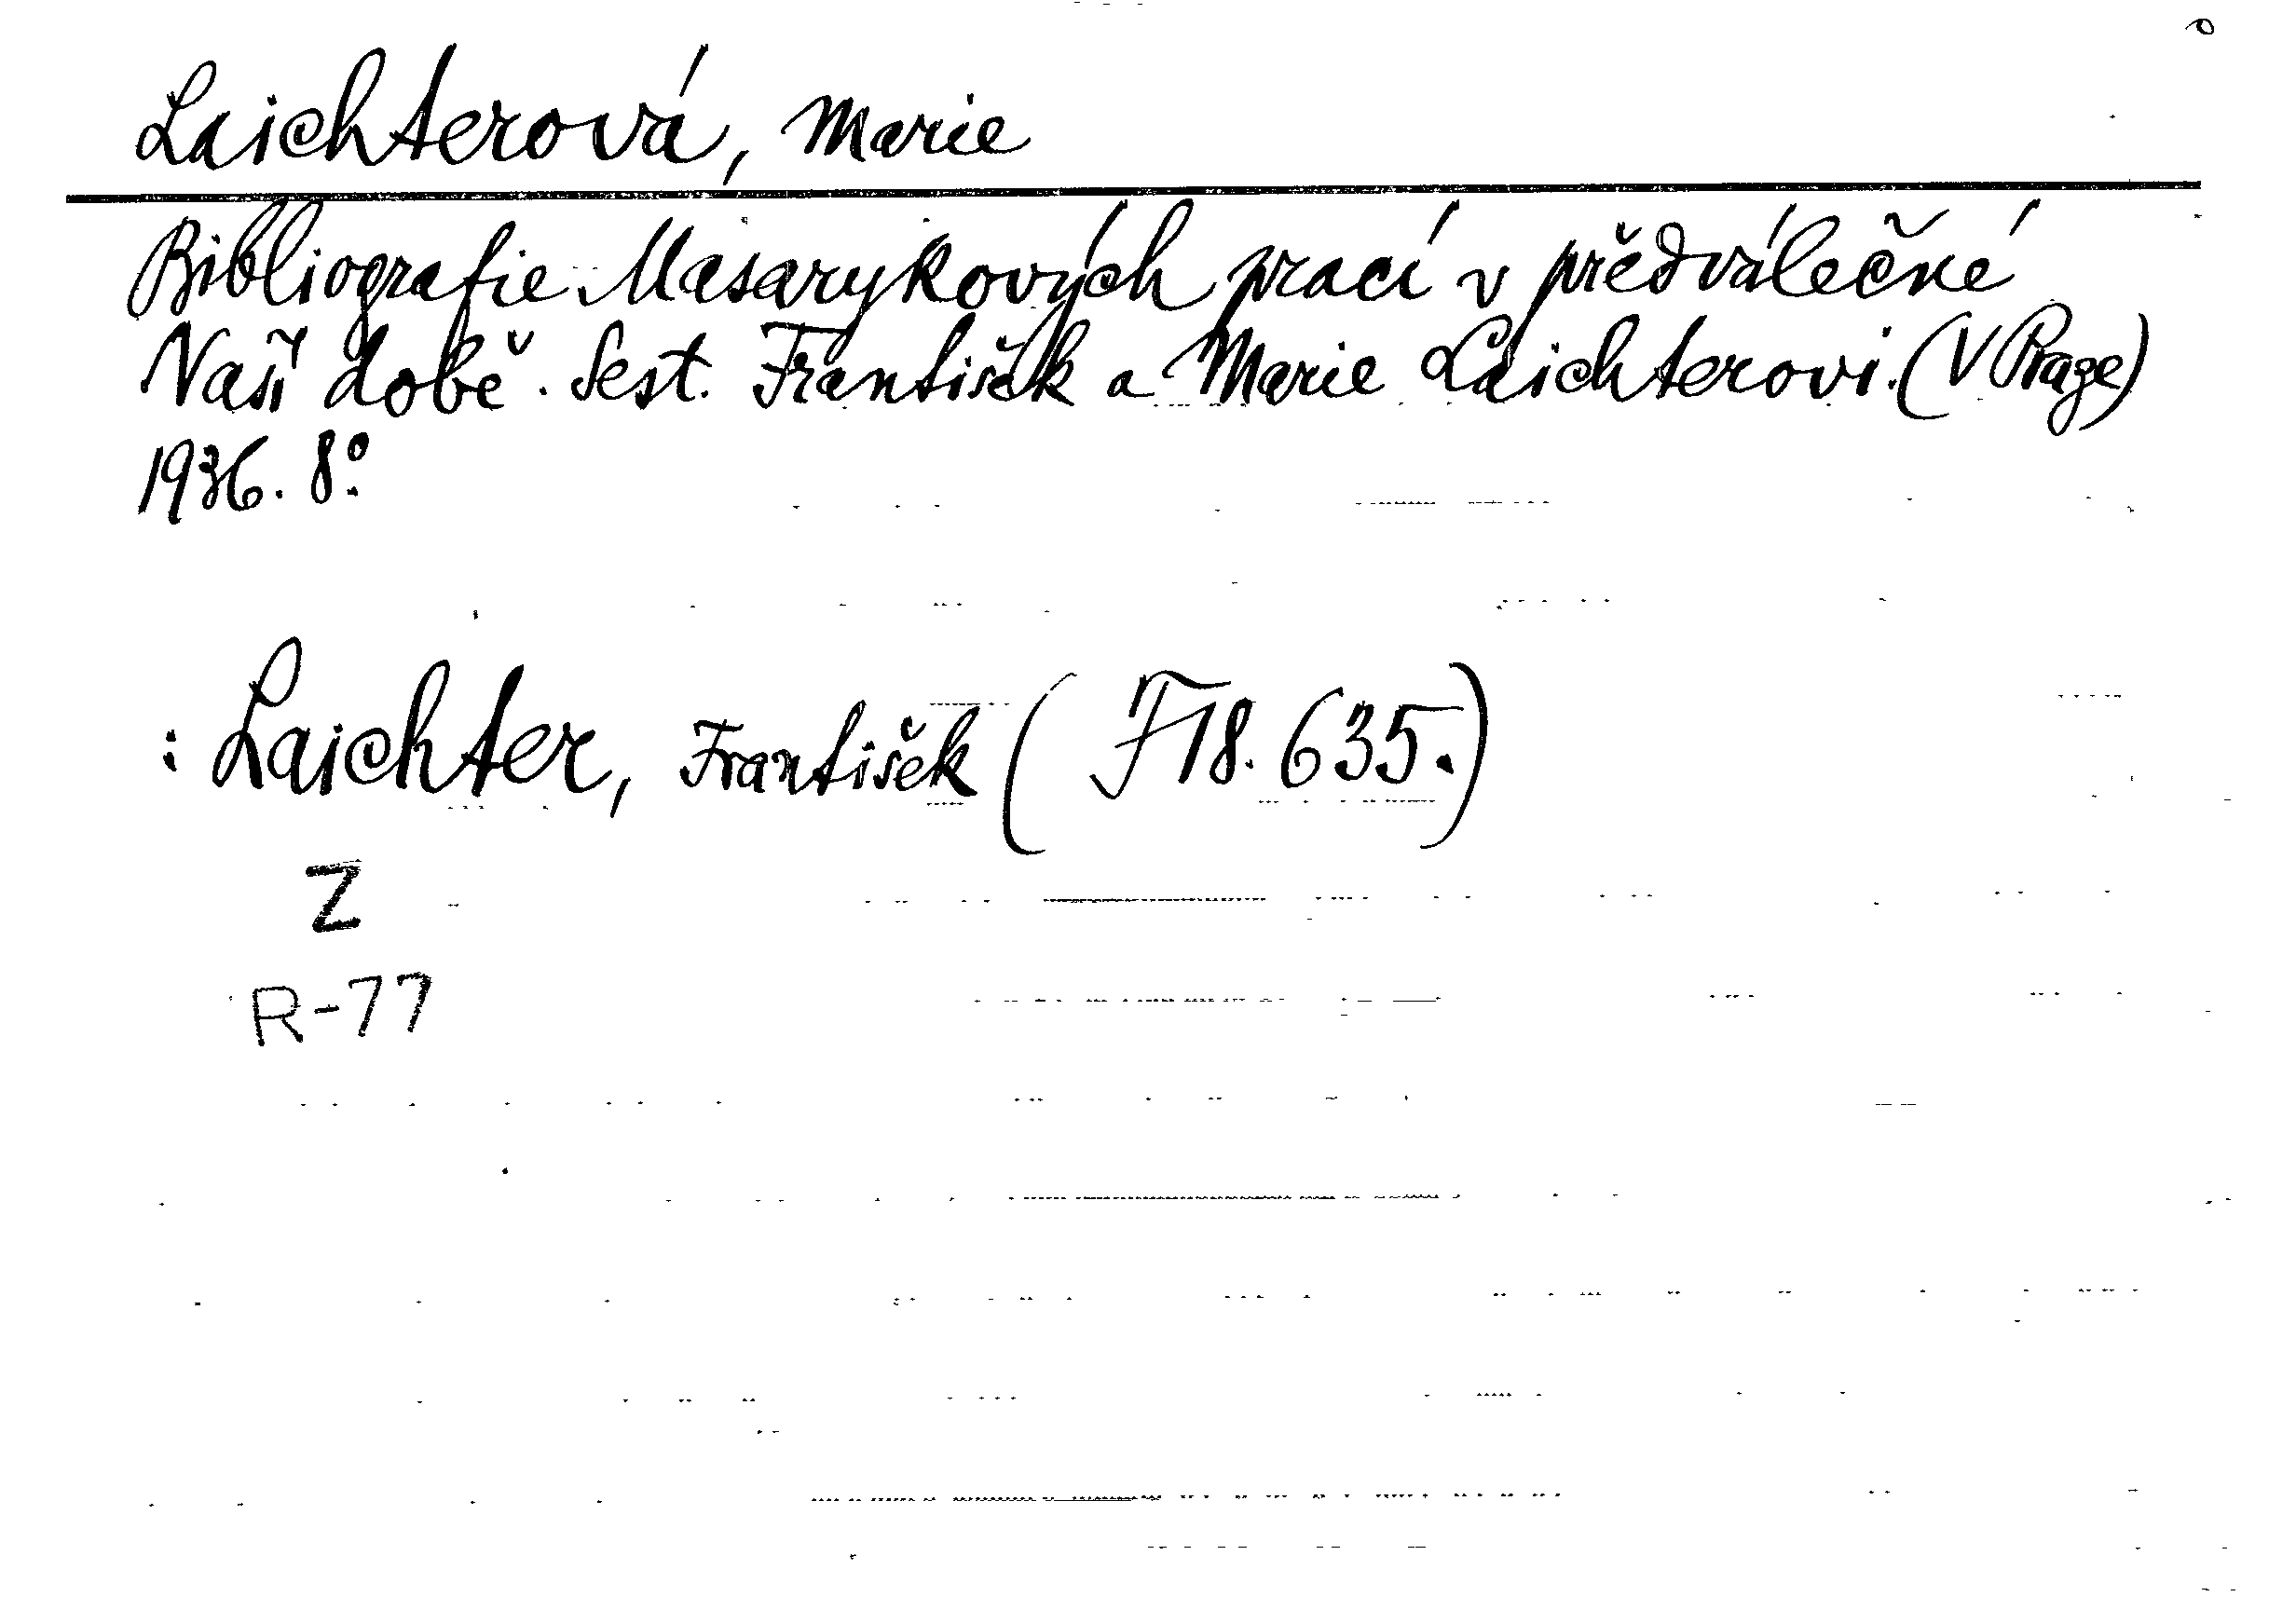 Laichterová, Marie
Bibliografie Masarykových prací v předválečné
Naší době. Sest. František a Marie Laichterovi. (V Praze)
1936. 8°.
: Laichter, František (F18.635.)
Z
R-77